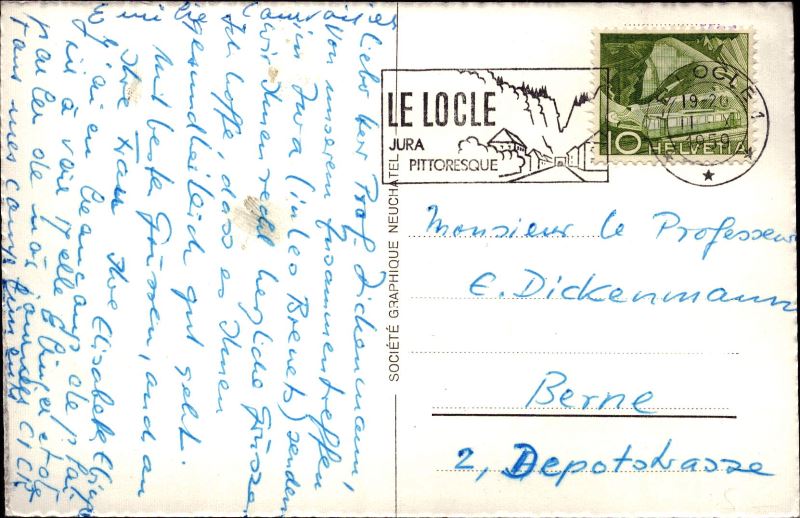 Lieber Herr Prof. Dickenmann,
von unserem Zusammentreffen
im Jura (in Les Brenets) senden
wir Ihnen recht herzliche Grüsse.
Ich hoffe, dass es Ihnen
gesundheitlich gut geht.
Mit besten Grüssen, auch an
Ihre Frau Ihre Elisabeth
J'ai eu beaucoup de plai-
sir à voir Melle et à
parler de nos
tous mes compliments
SOCIÉTÉ GRAPHIQUE NEUCHATEL
LE LOCLE
JURA
PITTORESQUE
LE LOCLE 1
19-20
1959
10 HELVETIA
Monsieur le Professeur
E. Dickenmann
Berne
2, Depotstrasse